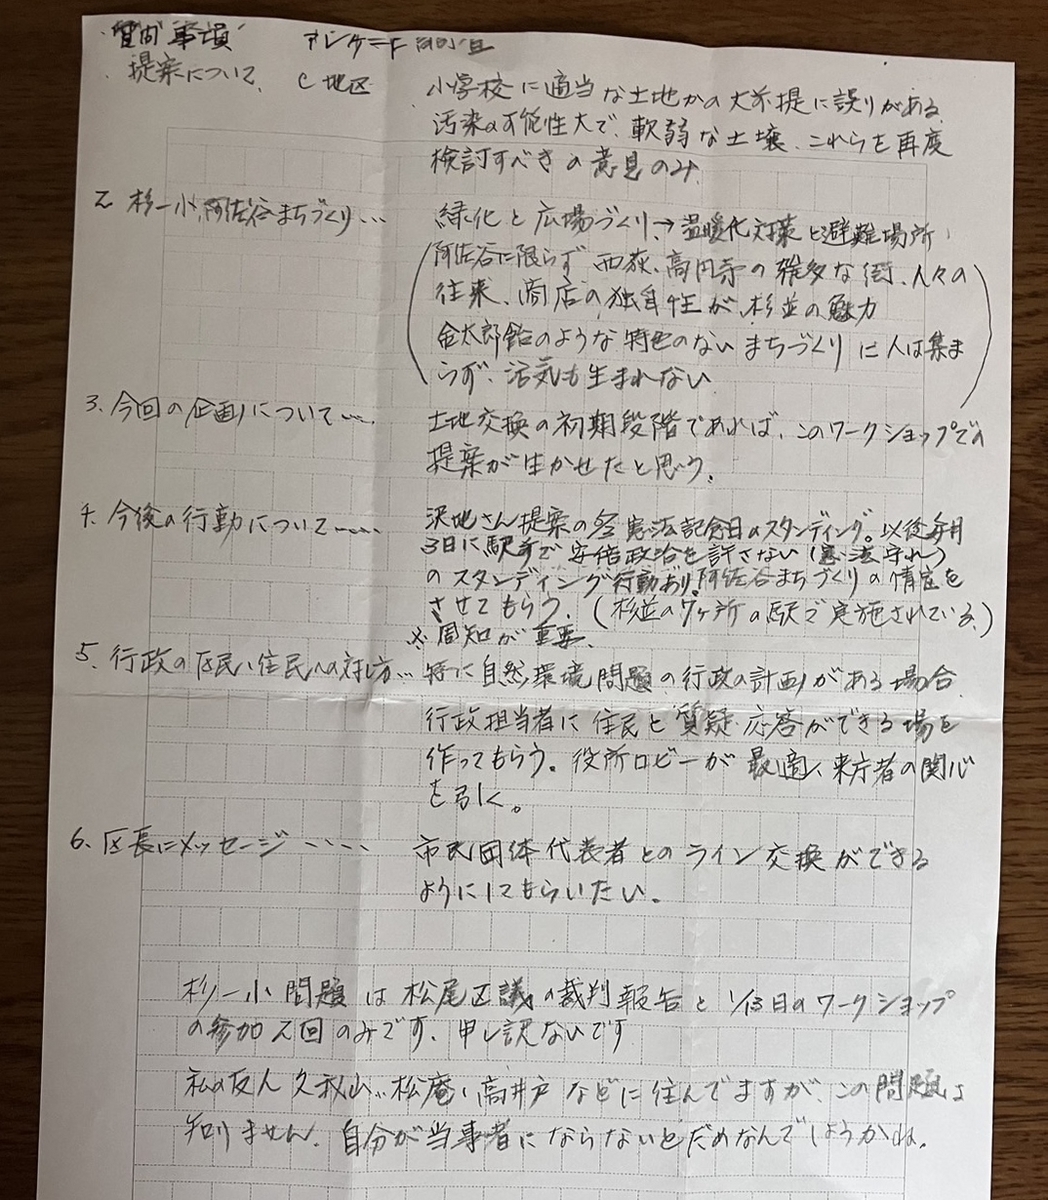 質問事項 アンケート
提案について、 C地区 小学校に適当な土地かの大前提に誤りがある、
汚染の可能性大で、軟弱な土壌、これらを再度
検討すべきの意見のみ
2. 杉一小、阿佐谷まちづくり… 緑化と広場づくり、→温暖化対策と避難場所
(阿佐谷に限らず 西荻、高円寺の雑多な街、人々の
往来、商店の独自性が、杉並の魅力
金太郎飴のような特色のないまちづくりに人は集ま
らず、活気も生まれない)
3. 今回の企画について… 土地交換の初期段階であれば、このワークショップでの
提案が生かせたと思う。
4. 今後の行動について…… 沢地さん提案の 憲法記念日のスタンディング。以後毎月
3日に駅前で安倍政治を許さない(憲法守れ)
のスタンディング行動あり。阿佐谷まちづくりの情宣を
させてもらう。(杉並の7ヶ所の駅で実施されている。)
※周知が重要、
5. 行政の区民、住民への対し方… 特に自然環境問題の行政の計画がある場合、
行政担当者に住民と質疑・応答ができる場を
作ってもらう。役所ロビーが最適、来庁者の関心
を引く。
6. 区長にメッセージ…… 市民団体代表者とのライン交換ができる
ようにしてもらいたい。
杉一小問題は松尾区議の裁判報告と1/13日のワークショップ
の参加2回のみです、申し訳ないです
私の友人久我山、松庵、高井戸などに住んでますが、この問題は
知りません、自分が当事者にならないとだめなんでしょうかね。